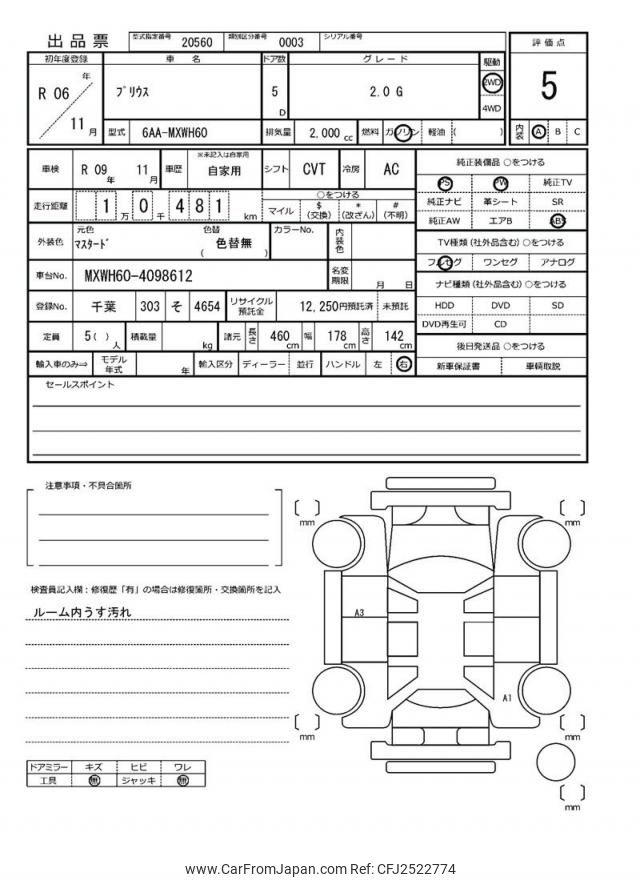 出品票 型式指定番号 20560 類別区分番号 0003 シリアル番号
初年度登録 車名 ドア数 グレード 駆動 評価点
R 06 年 11 月 プリウス 5 D 2.0 G 2WD 4WD 5
型式 6AA-MXWH60 排気量 2,000 cc 燃料 ガソリン 軽油 ( ) 内装 A B C
車検 R 09 年 11 月 車歴 ※未記入は自家用 自家用 シフト CVT 冷房 AC
純正装備品 ○をつける
PS PW 純正TV
純正ナビ 革シート SR
純正AW エアB ABS
走行距離 1 万 0 千 4 8 1 km ○をつける
マイル $ (交換) * (改ざん) # (不明)
外装色 元色 マスタード 色替 色替無 ( ) カラーNo. 内装色
TV種類 (社外品含む) ○をつける
フルセグ ワンセグ アナログ
車台No. MXWH60-4098612 名変期限 月 日
ナビ種類 (社外品含む) ○をつける
HDD DVD SD
DVD再生可 CD
登録No. 千葉 303 そ 4654 リサイクル預託金 12,250円預託済 未預託
定員 5 ( ) 人 積載量 kg 諸元 長さ 460 cm 幅 178 cm 高さ 142 cm
後日発送品 ○をつける
新車保証書 車輌取説
輸入車のみ⇨ モデル年式 年 輸入区分 ディーラー 並行 ハンドル 左 右
セールスポイント
注意事項・不具合箇所
検査員記入欄：修復歴「有」の場合は修復箇所・交換箇所を記入
ルーム内うす汚れ
ドアミラー キズ ヒビ ワレ
工具 無 ジャッキ 無
mm
mm
A3
A1
mm
mm
mm
www.CarFromJapan.com Ref: CFJ2522774